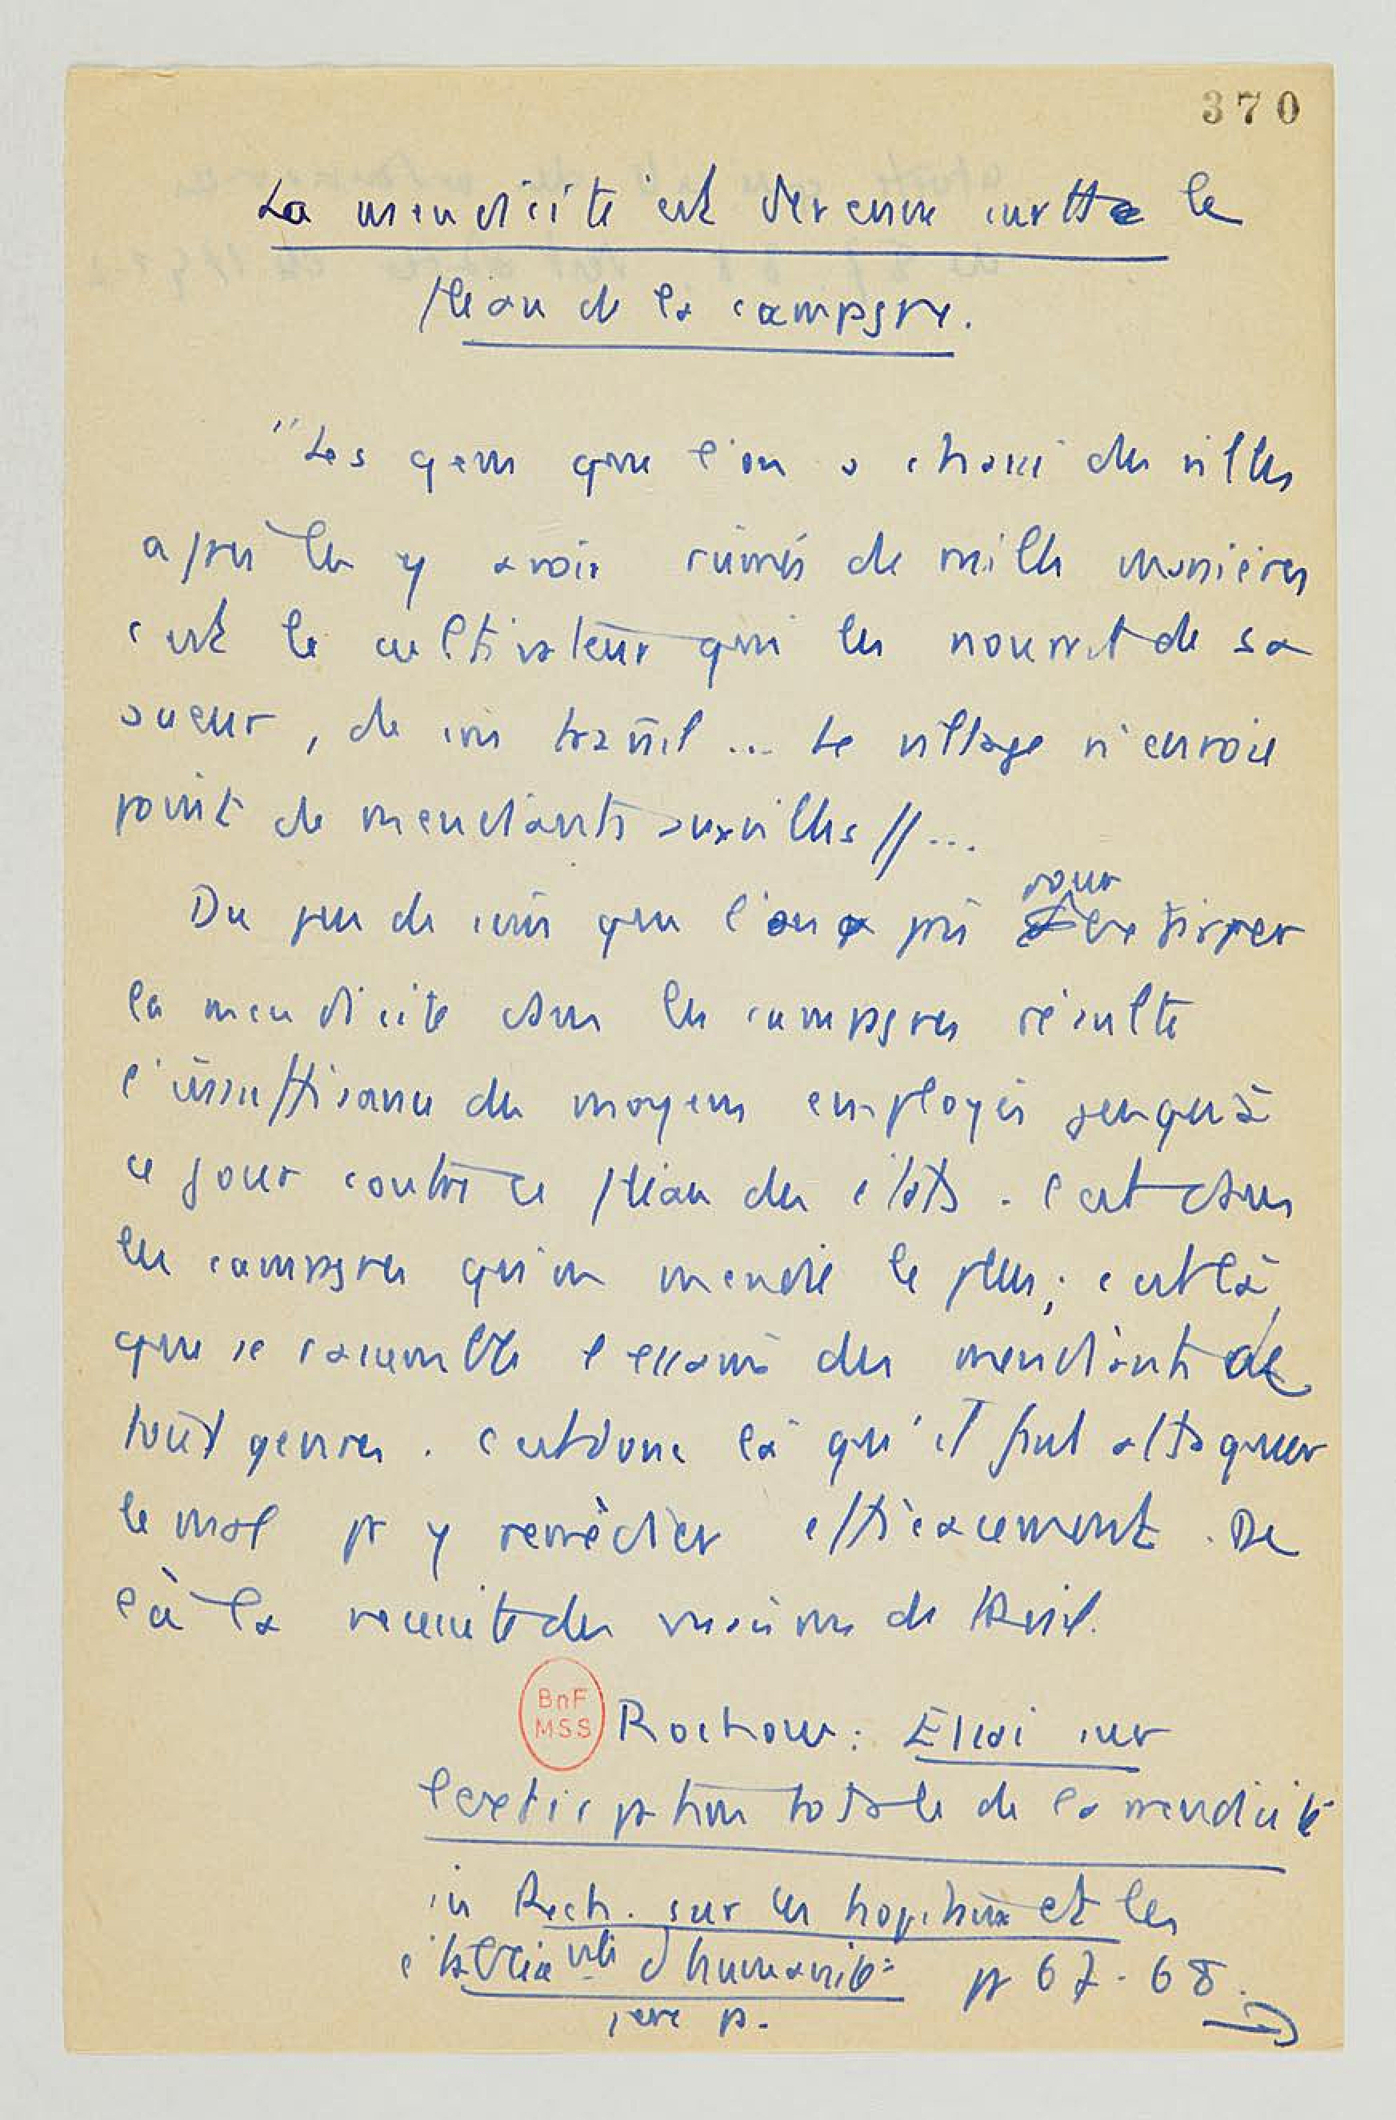 370
La mendicité est devenue surtt le
fléau de la campagne.
"Les gens que l'on a chassé des villes
après les y avoir ruinés de mille manières
c'est le cultivateur qui les nourrit de sa
sueur, de son travail... Le village n'envoie
point de mendiants aux villes //...
Du peu de soin que l'on a pris pour extirper
la mendicité dans les campagnes résulte
l'insuffisance des moyens employés jusqu'à
ce jour contre ce fléau des états. C'est dans
les campagnes qu'on mendie le plus; c'est là
que se rassemble l'essaim des mendiants de
tout genres. C'est donc là qu'il faut attaquer
le mal pr y remédier efficacement. De
là la nécessité des maisons de travail.
BnF
MSS
Rochow: Essai sur
l'extirpation totale de la mendicité
in Rech. sur les hopitaux et les
établissements d'humanité p 67-68.
1ere p.